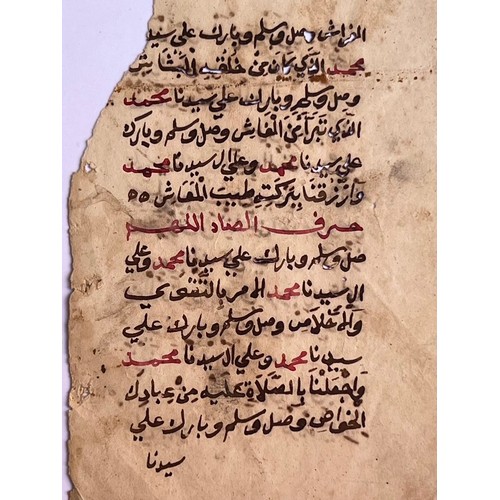 الفراش وصل وسلم وبارك علي سيدنا
محمد الذي كان من خلقه البشاش
وصل وسلم وبارك علي سيدنا محمد
الذي تبرأ من المغاش وصل وسلم وبارك
علي سيدنا محمد وعلي ال سيدنا محمد
وارزقنا ببركته طيب المعاش
حرف الصاد اللهم
صل وسلم وبارك علي سيدنا محمد وعلي
ال سيدنا محمد الامر بالتقوي
والاخلاص وصل وسلم وبارك علي
سيدنا محمد وعلي ال سيدنا محمد
واجعلنا بالصلاة عليه من عبادك
الخواص وصل وسلم وبارك علي
سيدنا